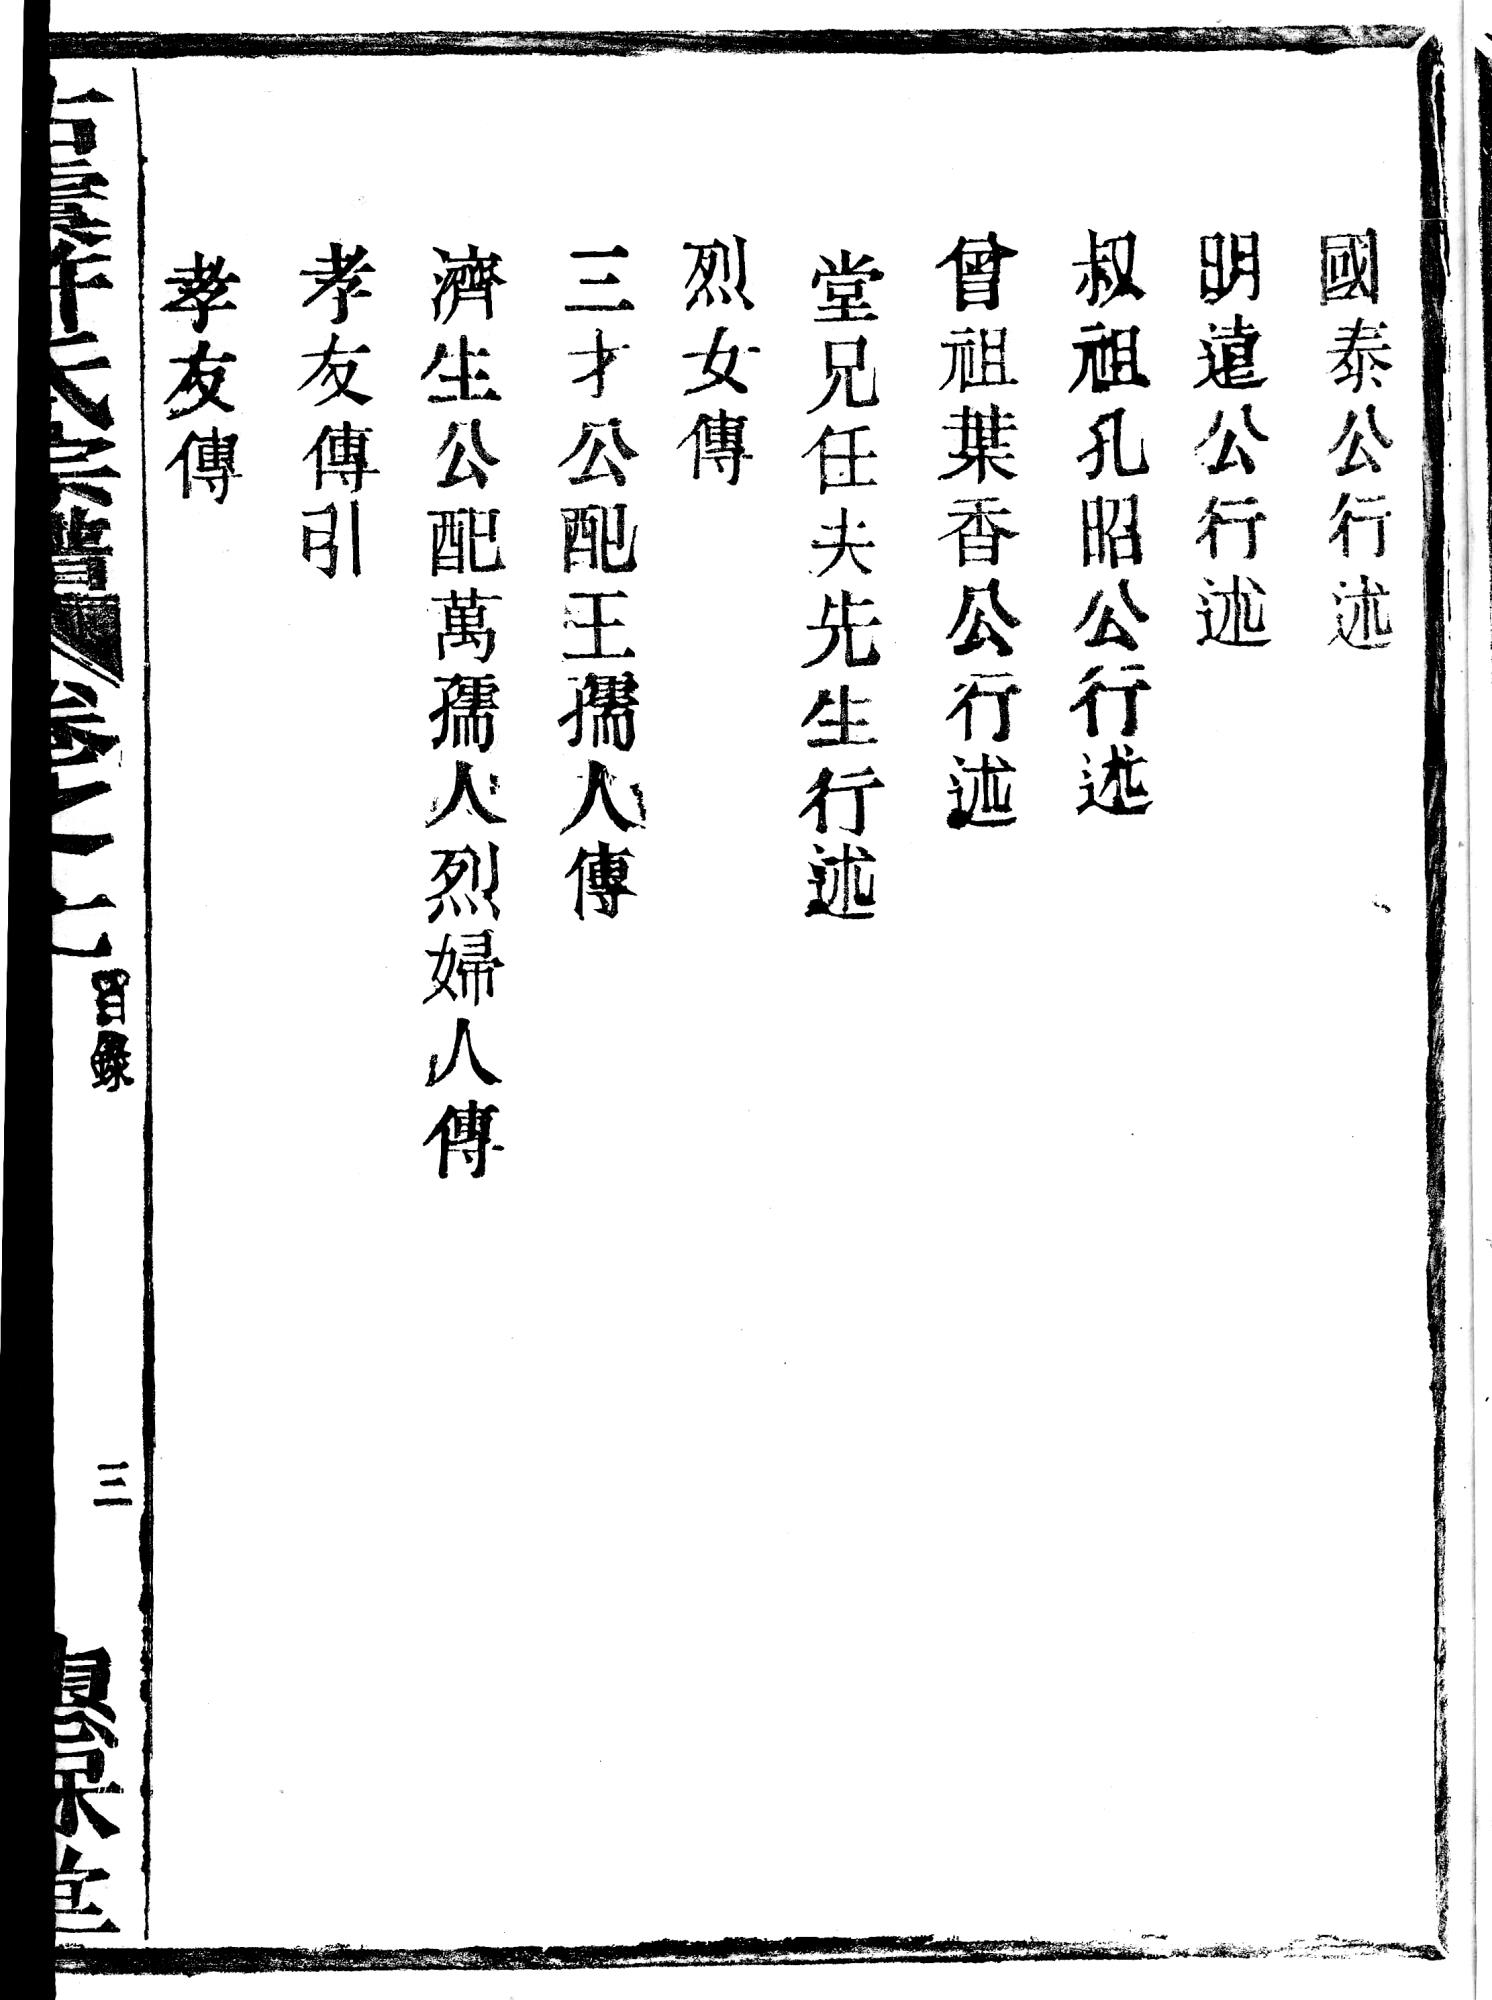 國泰公行述
明遠公行述
叔祖孔昭公行述
曾祖葉香公行述
堂兄任夫先生行述
烈女傳
三才公配王孺人傳
濟生公配萬孺人烈婦人傳
孝友傳引
孝友傳
許氏宗譜 卷之七 目錄 三 堂